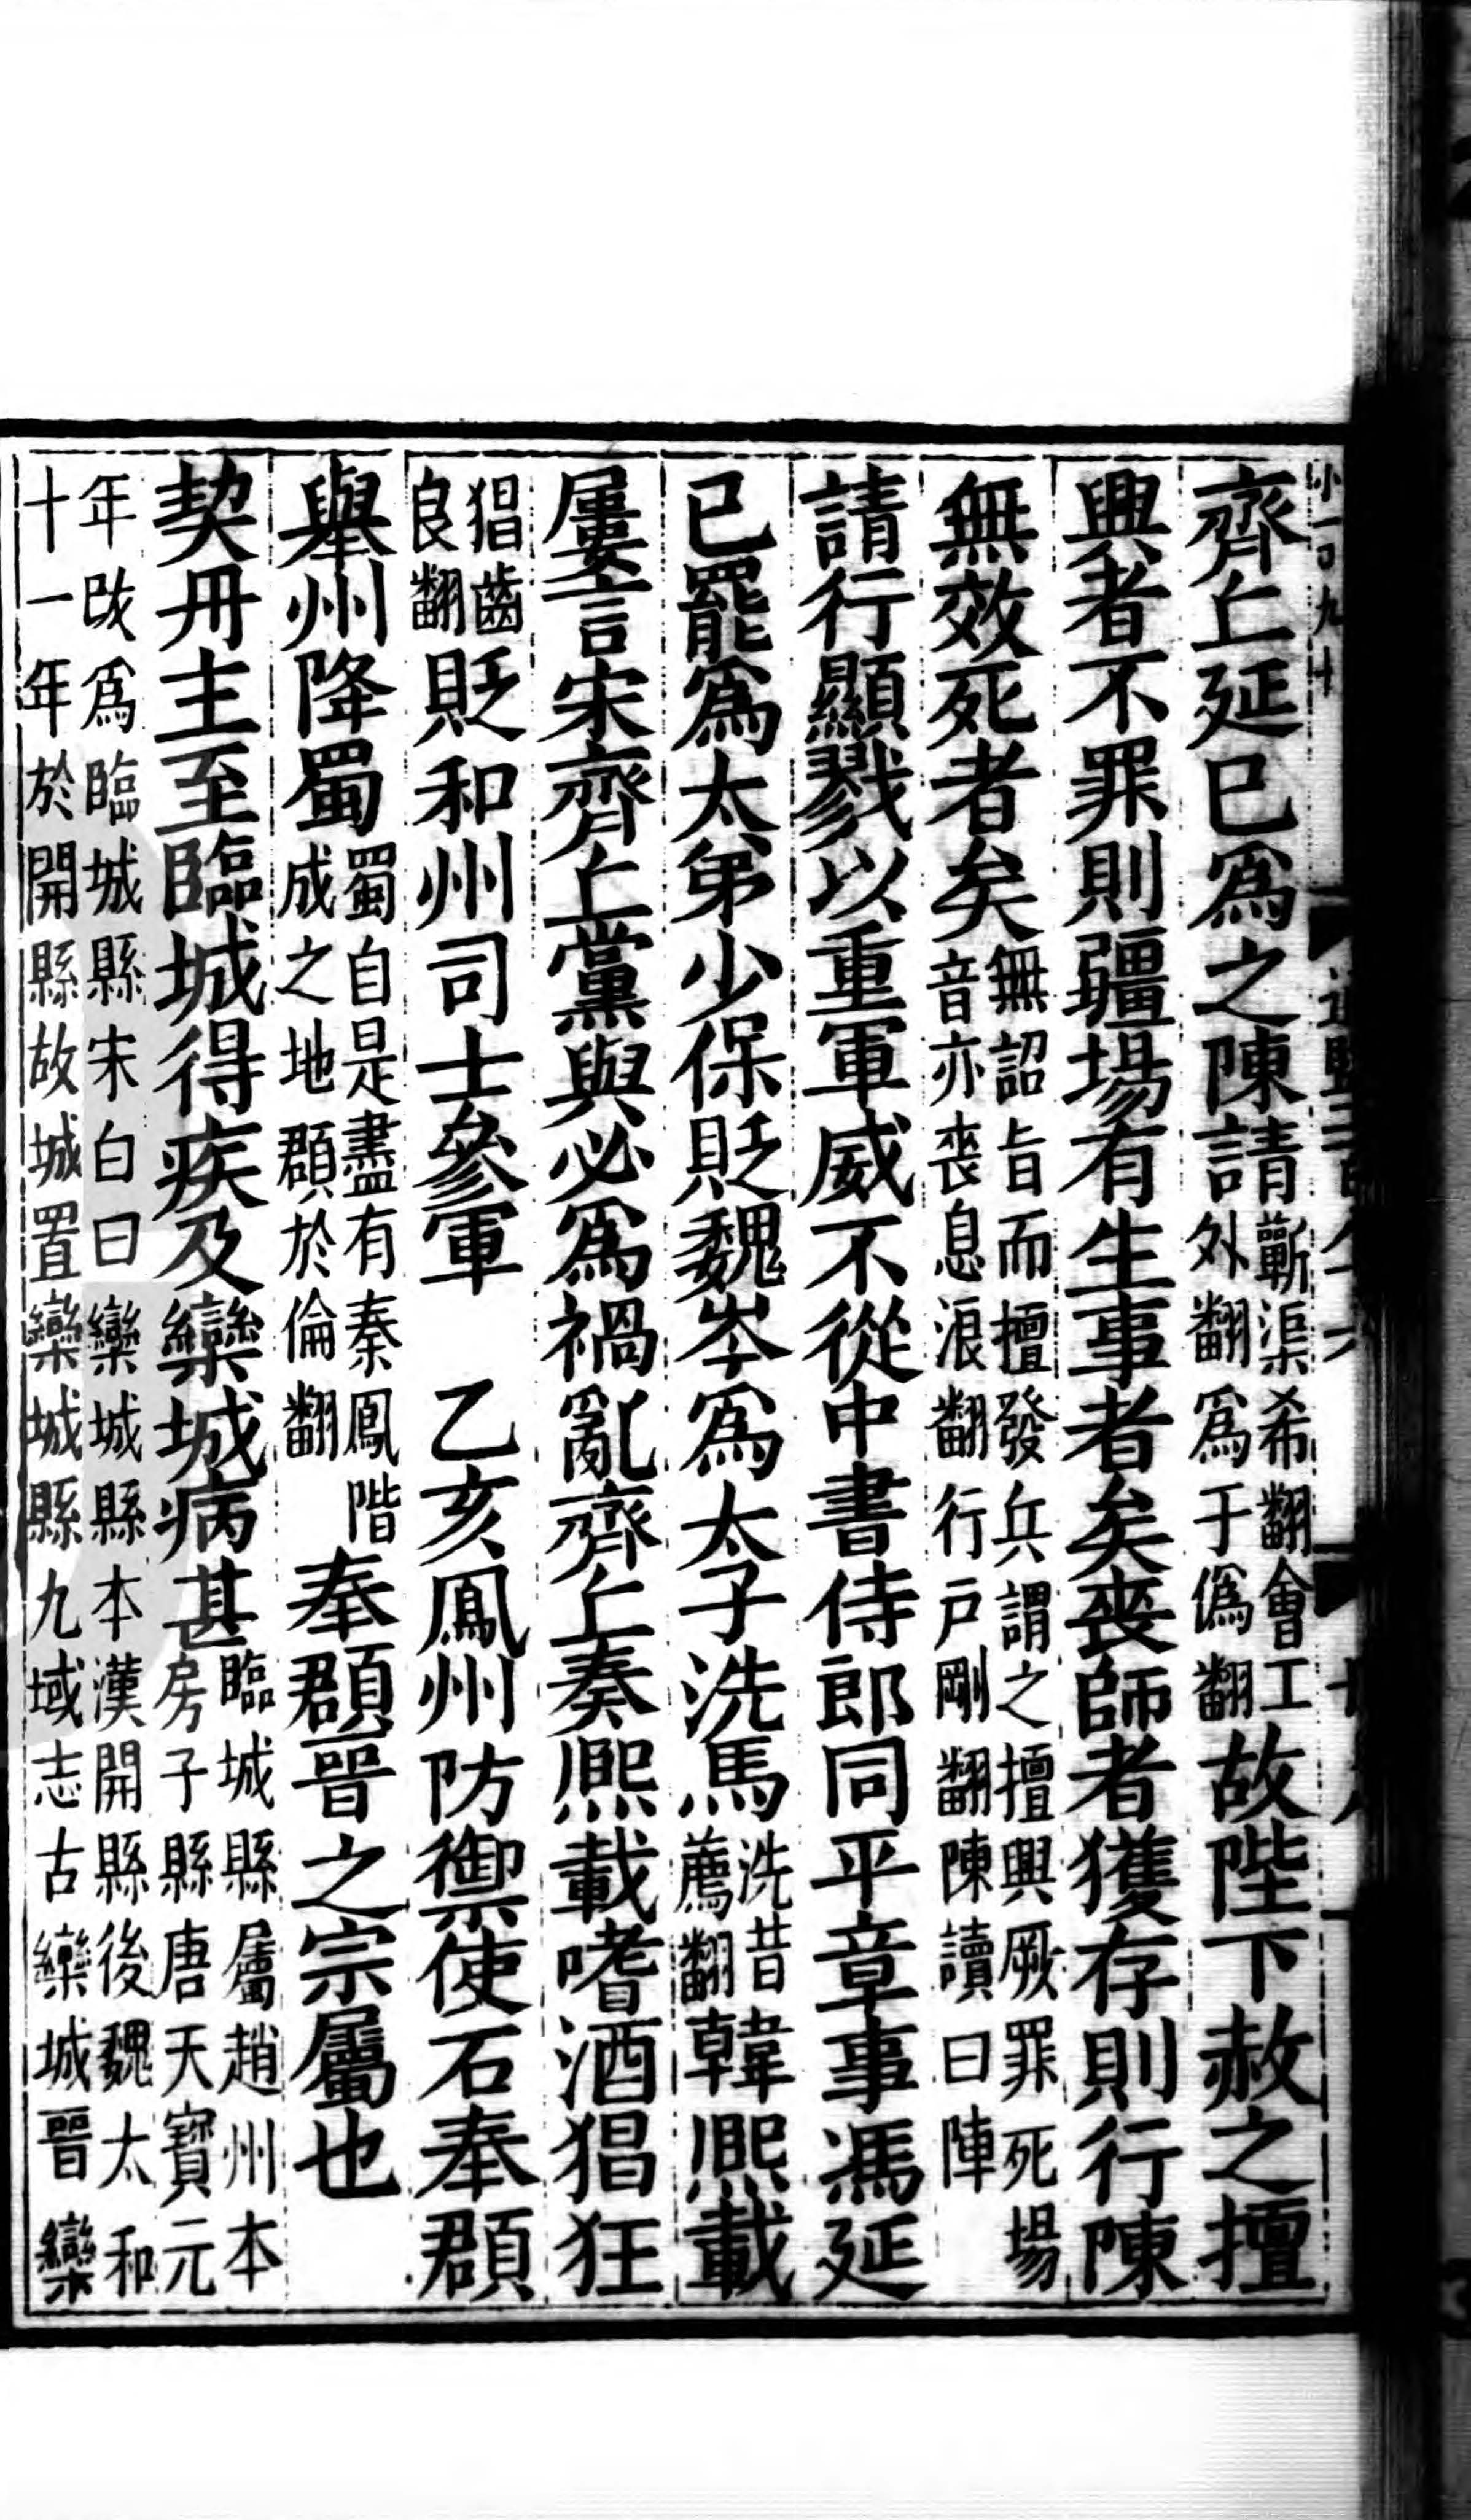 齊丘延巳爲之陳請蘄渠希翻會工外翻爲于僞翻故陛下赦之擅
興者不罪則疆埸有生事者矣喪師者獲存則行陳
無效死者矣無詔旨而擅發兵謂之擅興厥罪死埸音亦喪息浪翻行戸剛翻陳讀曰陣
請行顯戮以重軍威不從中書侍郎同平章事馮延
已罷爲太弟少保貶魏岑爲太子洗馬洗昔薦翻韓熈載
屢言宋齊丘黨與必爲禍亂齊丘奏熈載嗜酒猖狂
猖齒良翻貶和州司士參軍 乙亥鳳州防禦使石奉頵
舉州降蜀蜀自是盡有秦鳳階成之地頵於倫翻奉頵晉之宗屬也
契丹主至臨城得疾及欒城病甚臨城縣屬趙州本房子縣唐天寶元
年改爲臨城縣宋白曰欒城縣本漢開縣後魏太和十一年於開縣故城置欒城縣九域志古欒城晉欒